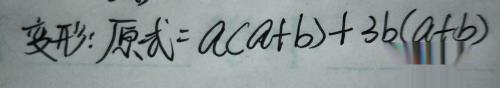 变形:原式=a(a+b)+3b(a+b)